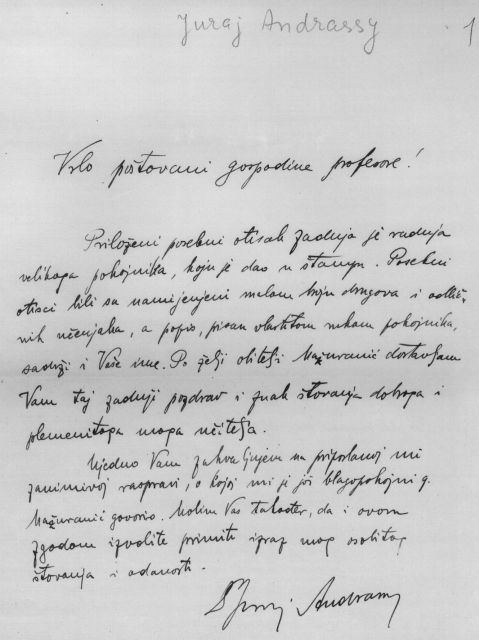 Juraj Andrassy 1
Vrlo poštovani gospodine profesore!
Priloženi posebni otisak zadnja je radnja
velikoga pokojnika, koju je dao u štampu. Posebni
otisci bili su namijenjeni malom broju drugova i odlič-
nih učenjaka, a popis, pisan vlastitom rukom pokojnika,
sadrži i Vaše ime. Po želji obitelji Mažuranić dostavljam
Vam taj zadnji pozdrav i znak štovanja dobroga i
plemenitoga moga učitelja.
Ujedno Vam zahvaljujem na pripslanoj mi
zanimivoj raspravi, o kojoj mi je još blagopokojni g.
Mažuranić govorio. Molim Vas također, da i ovom
zgodom izvolite primiti izraz mog osobitog
štovanja i odanosti.
Juraj Andrassy